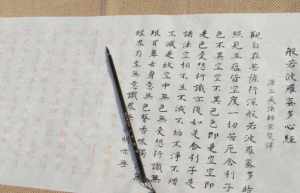 般若波羅蜜多心經
唐三藏法師玄奘譯
觀自在菩薩行深般若波羅蜜多時
照見五蘊皆空度一切苦厄舍利子
色不異空空不異色色即是空空即
是色受想行識亦復如是舍利子是
諸法空相不生不滅不垢不淨不增
不減是故空中無色無受想行識無
眼耳鼻舌身意無色聲香味觸
乃至無意識界無